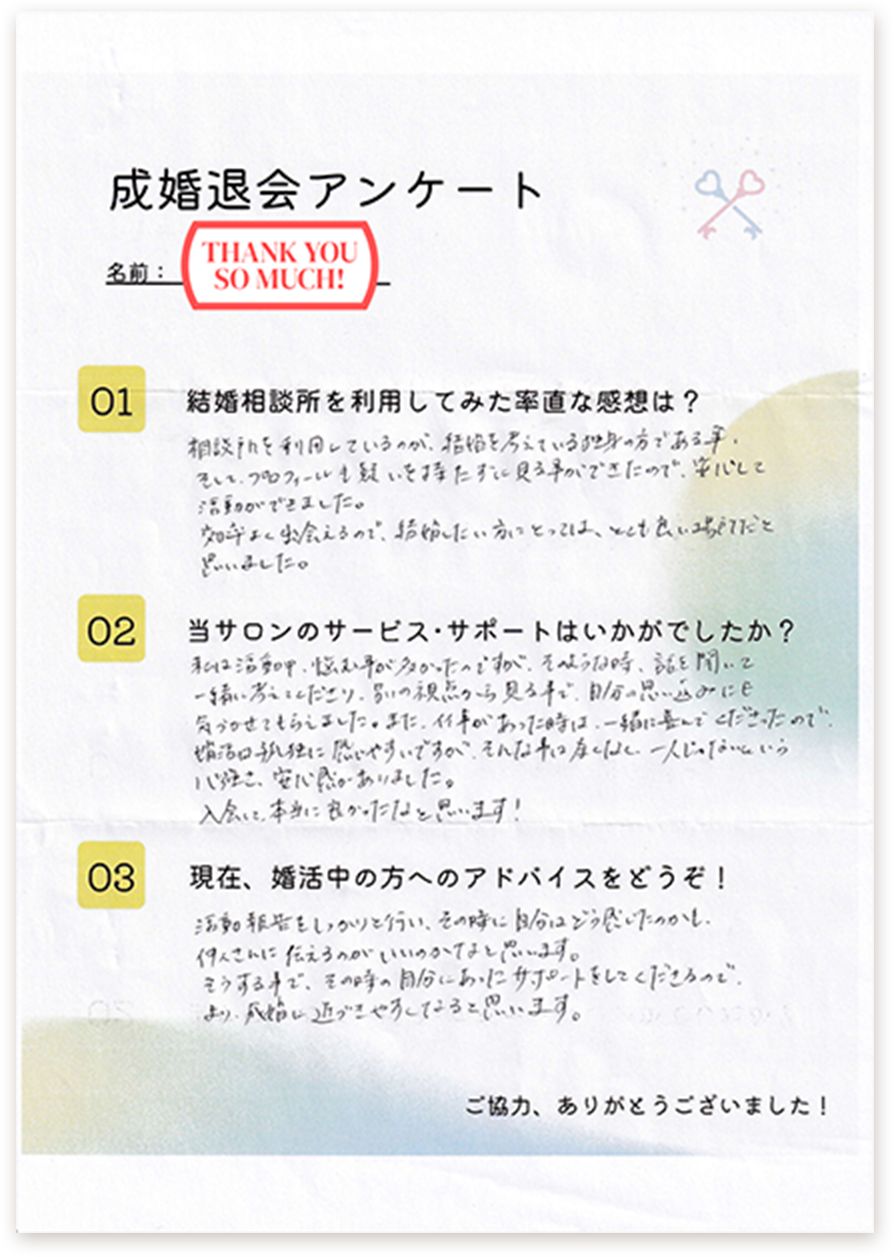 成婚退会アンケート
名前：
THANK YOU
SO MUCH!
01
結婚相談所を利用してみた率直な感想は？
相談所を利用しているのが、結婚を考えている独身の方である事、
そして、プロフィールも疑いを持たずに見る事ができたので、安心して
活動ができました。
効率よく出会えるので、結婚したい方にとっては、とても良い場所だと
思いました。
02
当サロンのサービス･サポートはいかがでしたか？
私は活動中、悩む事が多かったのですが、そのような時、話を聞いて
一緒に考えてくださり、別の視点から見る事で、自分の思い込みにも
気づかせてもらえました。また、何事があった時は、一緒に喜んでくださったので、
婚活は孤独に感じやすいですが、そんな事は全くなく、一人じゃないという
心強さ、安心感がありました。
入会して、本当に良かったなと思います！
03
現在、婚活中の方へのアドバイスをどうぞ！
活動報告をしっかりと行い、その時に自分はどう感じたのかも、
仲人さんに伝えるのがいいのかなと思います。
そうする事で、その時の自分にあったサポートをしてくださるので、
より、成婚に近づきやすくなると思います。
ご協力、ありがとうございました！